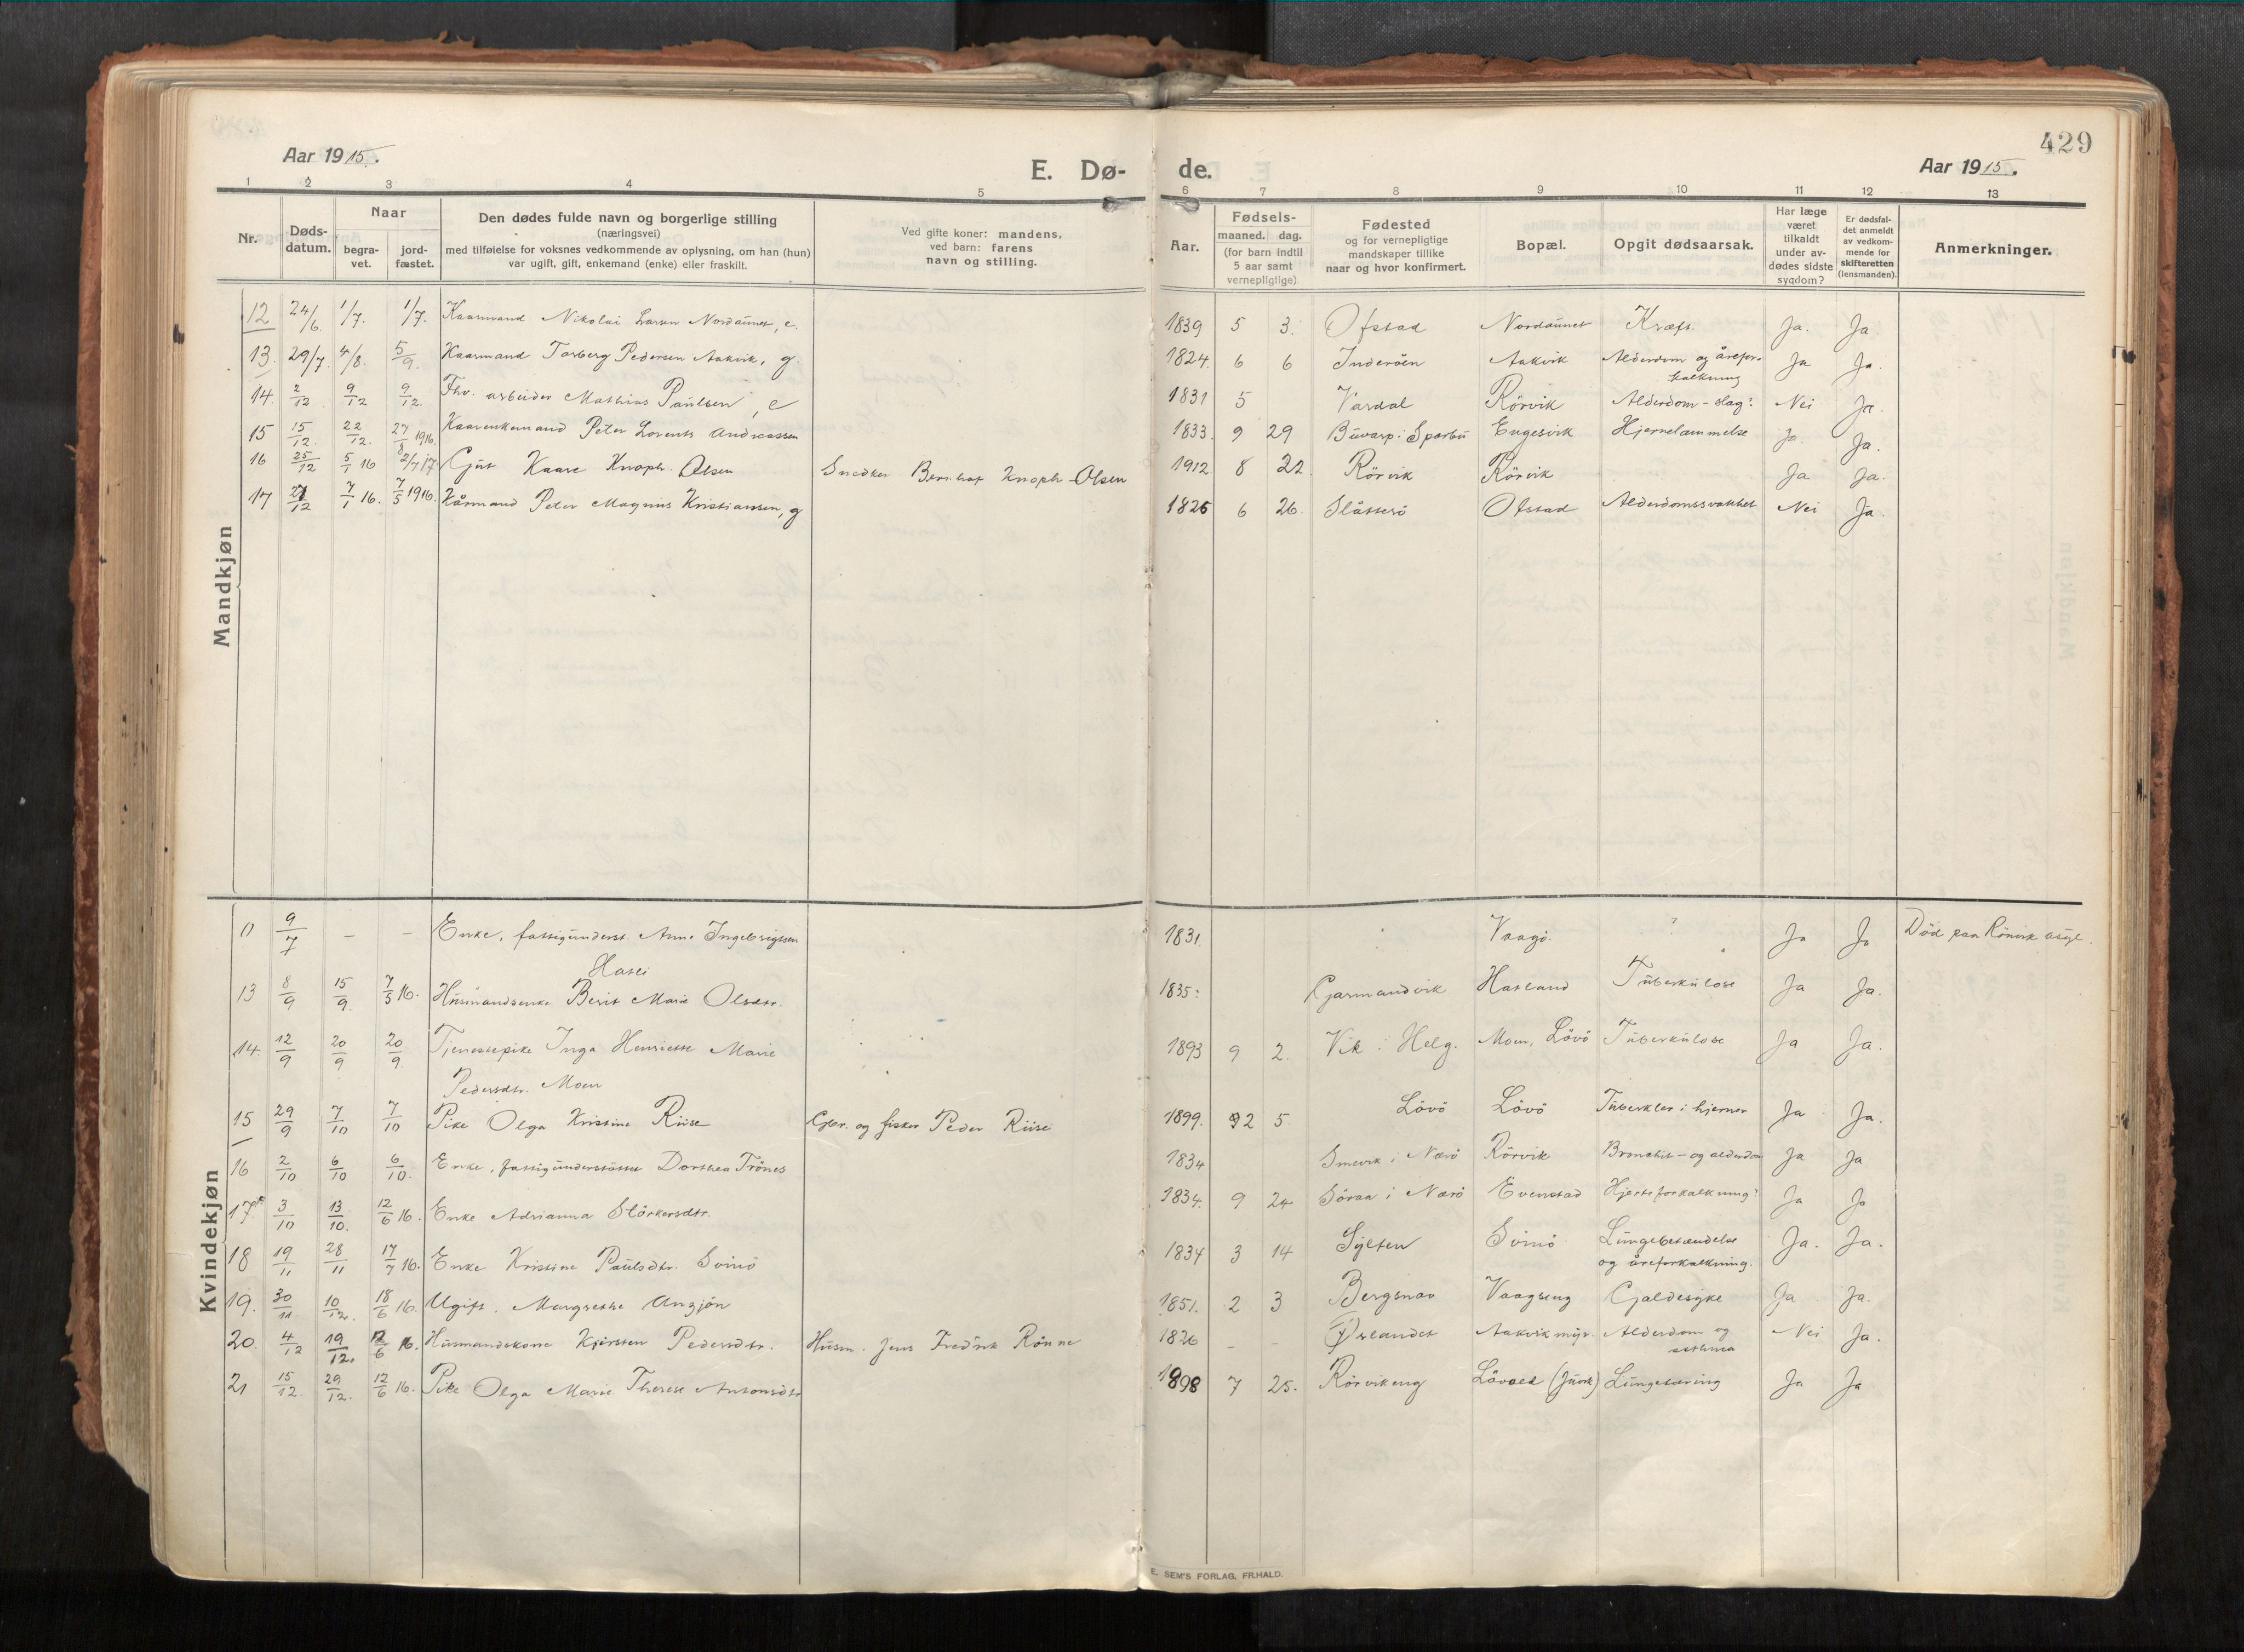 429
Aar 1915.
E. Dø-
de.
Aar 1915.
1 2 3 4 5 6 7 8 9 10 11 12 13
Nr.
Døds-
datum.
Naar
begra-
vet.
jord-
fæstet.
Den dødes fulde navn og borgerlige stilling
(næringsvei)
med tilføielse for voksnes vedkommende av oplysning, om han (hun)
var ugift, gift, enkemand (enke) eller fraskilt.
Ved gifte koner: mandens,
ved barn: farens
navn og stilling.
Aar.
Fødsels-
maaned. dag.
(for barn indtil
5 aar samt
vernepligtige)
Fødested
og for vernepligtige
mandskaper tillike
naar og hvor konfirmert.
Bopæl.
Opgit dødsaarsak.
Har læge
været
tilkaldt
under av-
dødes sidste
sygdom?
Er dødsfal-
det anmeldt
av vedkom-
mende for
skifteretten
(lensmanden).
Anmerkninger.
Mandkjøn
12 24/6. 1/7. 1/7. Kaarmand Nikolai Larsen Nordaunet, e. 1839 5 3. Ofstad Nordaunet Kræft. Ja. Ja.
13. 29/7. 4/8. 5/9. Kaarmand Torberg Pedersen Aakvik, g. 1824. 6 6 Inderöen Aakvik Alderdom og årefor- Ja Ja.
kalkning
14. 2/12 9/12 9/12. Fhv. arbeider Mathias Paulsen, e 1831 5 Vardal Rörvik Alderdom - slag? Nei Ja.
15 15/12. 22/12. 27/8 1916. Kaarenkemand Peter Lorents Andreassen 1833. 9 29 Buvarp i Sparbu Engesvik Hjernelammelse Ja. Ja.
16 25/12 5/1 16 2/7 17 Gut Kaare Knoph Olsen Snedker Bernhof Knoph Olsen 1912 8 22 Rörvik Rörvik Ja Ja.
17 27/12 7/1 16. 7/5 1916. Kårmand Peter Magnus Kristiansen, g 1826 6 26. Slåtterö Ofstad Alderdomssvakhet Nei Ja.
Kvindekjøn
11 9/7 - - Enke, fattigunderst. Anne Ingebrigtsen 1831. Vaagö. ? Ja Ja Död paa Rönvik asyl.
Hatli
13 8/9 15/9. 7/5 16. Husmandsenke Berit Marie Olsdtr. 1835: Garmandvik Hatland Tuberkulose Ja Ja.
14. 12/9 20/9 20/9. Tjenestepike Inga Henriette Marie 1893 9 2. Vik i Helg. Moen, Lövö Tuberkulose Ja Ja.
Pedersdtr. Moen
15 29/9 7/10 7/10 Pike Olga Kristine Riise Gbr. og fisker Peder Riise 1899. 2 5. Lövö Lövö Tuberkler i hjernen Ja Ja.
16 2/10 6/10 6/10. Enke, fattigunderstöttet Dorthea Trönes 1834 Smevik i Nærö Rörvik Bronchit - og alderdom Ja Ja
17. 3/10 13/10. 12/6 16. Enke Adrianna Störkersdtr. 1834. 9 24 Söraa i Nærö Evenstad Hjerteforkalkning? Ja Ja
18 19/11 28/11 17/7 16. Enke Kristine Paulsdtr. Svinö 1834 3 14 Sylten Svinö Lungebetændelse Ja. Ja.
og åreforkalkning.
19. 30/11 10/12. 18/6 16. Ugift. Margrethe Angjön 1851. 2 3 Bergsnov Vaagseng Galdesyke Ja Ja.
20. 4/12 19/12. 12/6 16. Husmandskone Kjersten Pedersdtr. Husm. Jens Fredrik Rönne 1826 - - Øslandet Aakvikmyr. Alderdom og Nei Ja.
asthma
21 15/12. 29/12. 12/6 16. Pike Olga Marie Therese Antonsdtr 1898 7 25. Rörvikeng Lungetæring Ja Ja
E. SEM'S FORLAG, FR.HALD.